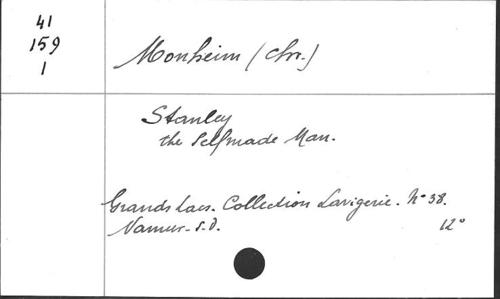 41
159
1
Monheim (Chr.)
Stanley
the Selfmade Man.
Grands Lacs. Collection Lavigerie. N° 38.
Namur - s.d. 12°